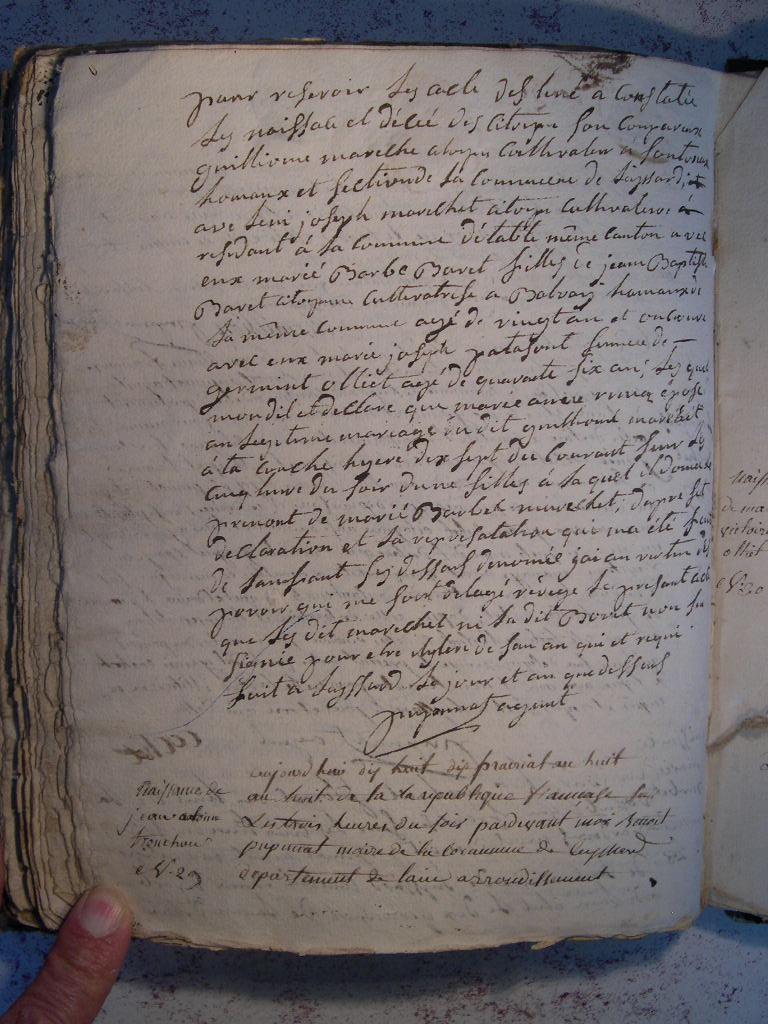 pour reservoir les acte des livré a Constatée
les naissace et décéé des citoyen son compareux
guilliome mareche citoyen Cultivateur à
homaux et sectionde la Commucene de Leyssard, et
ave lui joseph marechet citoyen Cultivateure à
residant à la Commune détable même canton avec
eux marié Barbe Baret filles de jean Baptiste
Baret citoyenne Cultivatrise a Balvay homaux de
la même Commune agé de vingt an et encore
avec eux marie joseph patasont femme de
germint olliet agé de quarante six an, les quel
mondit et declare que marie anne épose
an legitime mariage du dit guilliome marechet
á ta couche hyere dix sept du Courant sur les
cinq hure du soir dune filles à la quel il donnée
prenont de marié Barbet marechet, dapre set
declaration et la represatation qui ma été faite
de lanfant sis dessus denomée jai an vertu des
povoir qui me sont delagé rédigé le presant acte
que les dit marechet ne la dit Baret non su
signée pour etre de san an qui et requi
fait a Leyssard le jour et an que dessus
pupunat agent
aujourdhui dix huit prairial an huit
au huit de la la republique francaise sur
Les trois heures du soir pardevant moi Benoit
pupunat maire de la commune de Leyssard
departement de lain arrondissement
Naissance de
jean antoine
tronchon
e V. 29
Naiss
de ma
victoire
olliet
e V. 30